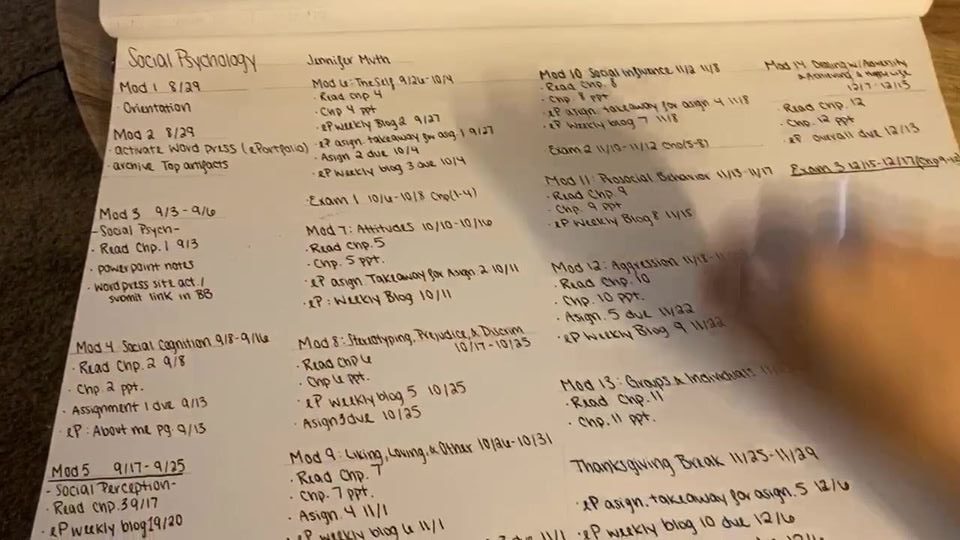 Social Psychology
Jennifer Muth
Mod 1 8/29
· Orientation
Mod 2 8/29
· activate Word Press (ePortfolio)
· archive Top artifacts
Mod 3 9/3 - 9/6
- Social Psych -
· Read Chp. 1 9/3
· powerpoint notes
· wordpress site act. /
submit link in BB
Mod 4 Social Cognition 9/8 - 9/16
· Read Chp. 2 9/8
· Chp. 2 ppt.
· Assignment 1 due 9/13
· eP: About me pg. 9/13
Mod 5 9/17 - 9/25
- Social Perception -
· Read Chp. 3 9/17
· eP weekly blog 1 9/20
Mod 6: The Self 9/26 - 10/4
· Read Chp 4
· Chp 4 ppt
· eP weekly Blog 2 9/27
· eP asign. takeaway for asg. 1 9/27
· Asign 2 due 10/4
· eP weekly blog 3 due 10/4
· Exam 1 10/6 - 10/8 Chp (1-4)
Mod 7: Attitudes 10/10 - 10/16
· Read Chp. 5
· Chp. 5 ppt.
· eP asign. Takeaway for Asign. 2 10/11
· eP: Weekly Blog 10/11
Mod 8: Sterotyping, Prejudice, & Discrim
10/17 - 10/25
· Read Chp 6
· Chp 6 ppt.
· eP weekly blog 5 10/25
· Asign 3 due 10/25
Mod 9: Liking, Loving, & Other 10/26 - 10/31
· Read Chp. 7
· Chp. 7 ppt.
· Asign. 4 11/1
· eP weekly blog 6 11/1
Mod 10 Social Influance 11/2 11/8
· Read Chp. 8
· Chp. 8 ppt
· eP asign. takeaway for asign 4 11/8
· eP weekly blog 7 11/8
Exam 2 11/10 - 11/12 Chp (5-8)
Mod 11: Prosocial Behavior 11/13 - 11/17
· Read Chp. 9
· Chp. 9 ppt
· eP weekly Blog 8 11/15
Mod 12: Aggression 11/18 -
· Read Chp. 10
· Chp. 10 ppt.
· Asign. 5 due 11/22
· eP weekly Blog 9 11/22
Mod 13: Groups & Individuals
· Read Chp. 11
· Chp. 11 ppt.
Thanksgiving Break 11/25 - 11/29
· eP asign. takeaway for asign. 5 12/6
· eP weekly blog 10 due 12/6
Mod 14 Dealing w/ Adversity
& Achieving a Happy Life
12/7 - 12/13
· Read Chp. 12
· Chp. 12 ppt
· eP overall due 12/13
Exam 3 12/15 - 12/17